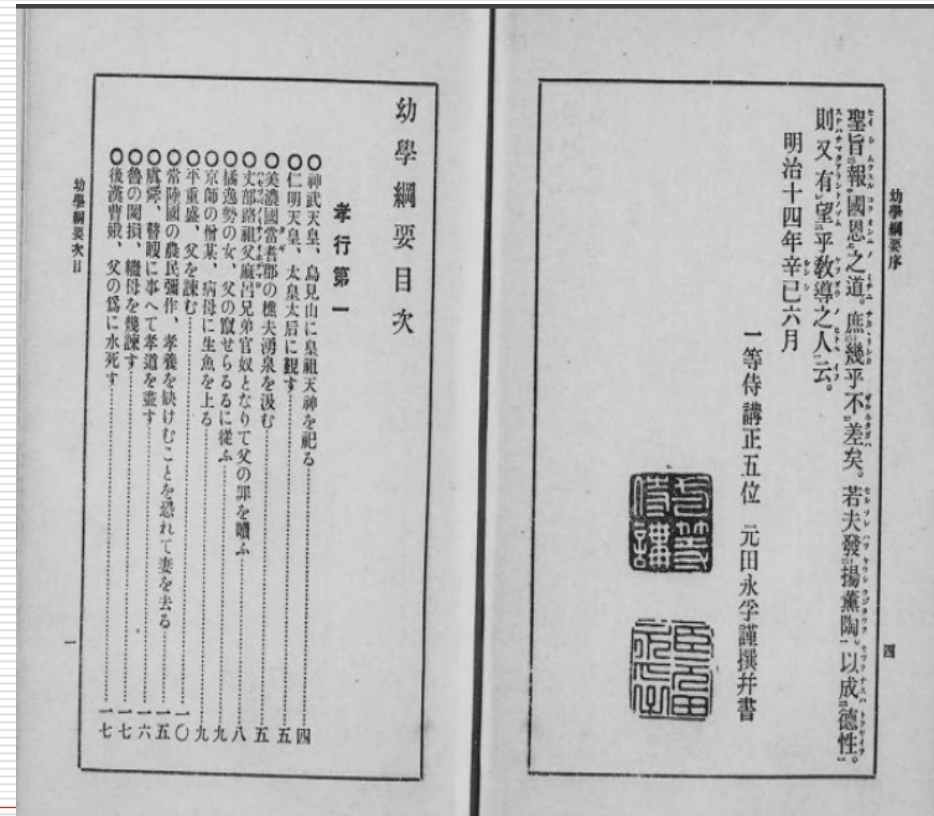 幼學綱要序
聖旨報國恩之道。庶幾乎不差矣。若夫發揚薰陶。以成德性。
則又有望乎教導之人云。
明治十四年辛巳六月
一等侍講正五位 元田永孚謹撰幷書
四
幼學綱要目次
孝行第一
〇神武天皇、鳥見山に皇祖天神を祀る……四
〇仁明天皇、太皇太后に覲す……五
〇美濃國當耆郡の樵夫湧泉を汲む……五
〇丈部路祖父麻呂兄弟官奴となりて父の罪を贖ふ……八
〇橘逸勢の女、父の竄せらるるに從ふ……九
〇京師の僧某、病母に生魚を上る……九
〇平重盛、父を諫む……一〇
〇常陸國の農民彌作、孝養を缺けむことを恐れて妻を去る……一五
〇虞舜、瞽瞍に事へて孝道を盡す……一六
〇魯の閔損、繼母を幾諫す……一七
〇後漢曹娥、父の爲に水死す……一七
幼學綱要目次
一